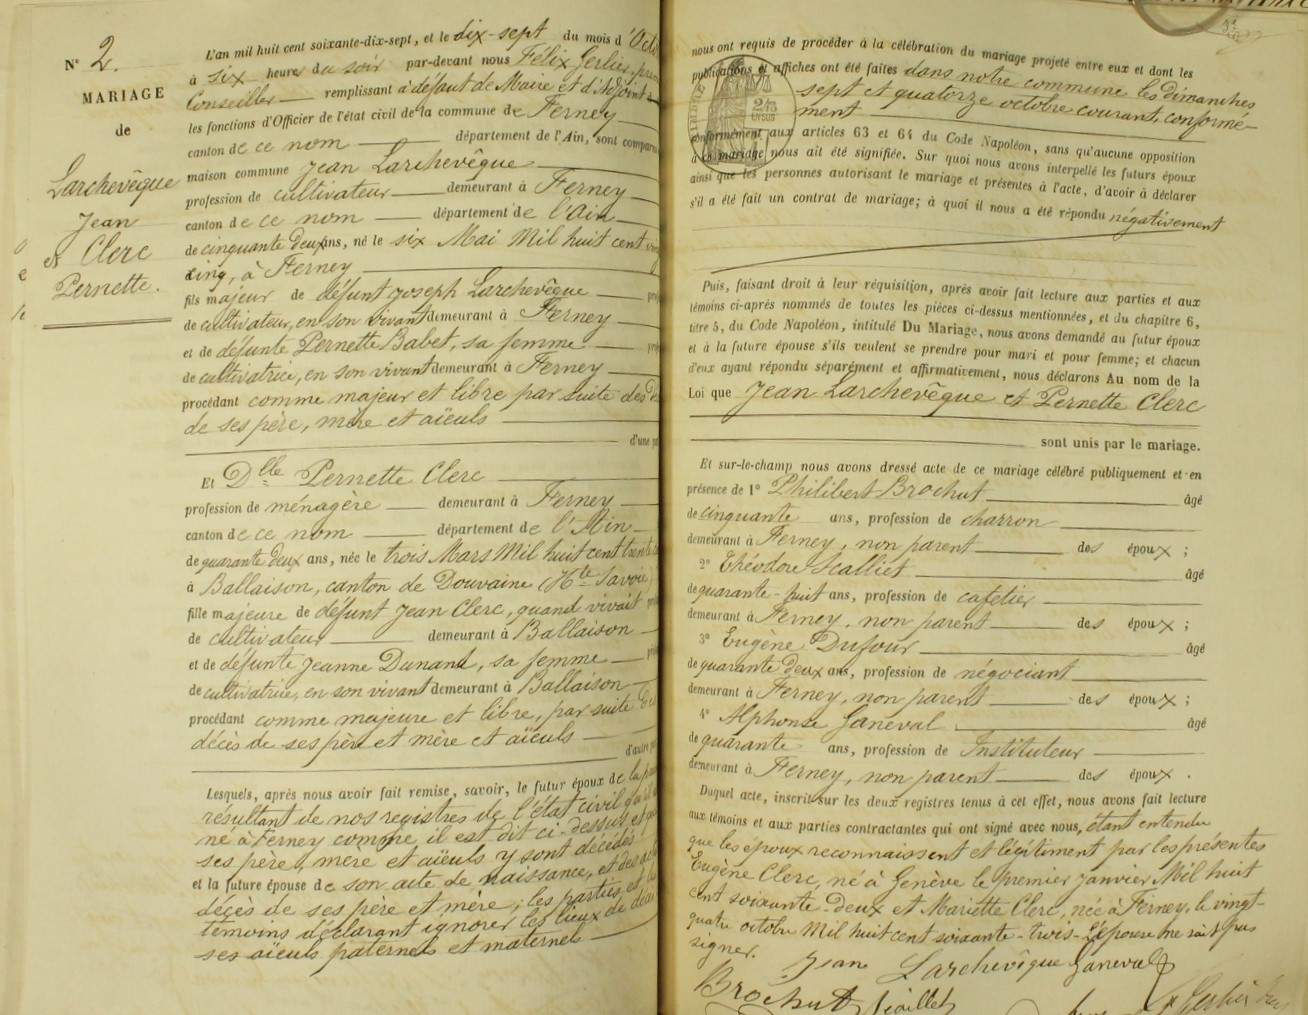 N° 2.
MARIAGE
de
Larchevêque
Jean
et Clerc
Pernette.
L'an mil huit cent soixante-dix-sept, et le dix-sept du mois d'Octo
à six heures du soir par-devant nous Félix Gerlier,
Conseiller remplissant à défaut de Maire et d'Adjoint
les fonctions d'Officier de l'état civil de la commune de Ferney
canton de ce nom département de l'Ain, sont comparus
maison commune Jean Larchevêque
profession de cultivateur demeurant à Ferney
canton de ce nom département de l'Ain
de cinquante deux ans, né le six Mai Mil huit cent
cinq, à Ferney
fils majeur de défunt Joseph Larchevêque
de cultivateur, en son vivant demeurant à Ferney
et de défunte Pernette Babet, sa femme
de cultivatrice, en son vivant demeurant à Ferney
procédant comme majeur et libre par suite des
de ses père, mère et aïeuls
d'une pa
Et Dlle Pernette Clerc
profession de ménagère demeurant à Ferney
canton de ce nom département de l'Ain
de quarante deux ans, née le trois Mars Mil huit cent trente
à Ballaison, canton de Douvaine (Hte Savoie)
fille majeure de défunt Jean Clerc, quand vivait
de cultivateur demeurant à Ballaison
et de défunte Jeanne Dunant, sa femme
de cultivatrice, en son vivant demeurant à Ballaison
procédant comme majeure et libre, par suite de
décès de ses père et mère et aïeuls
d'autre
Lesquels, après nous avoir fait remise, savoir, le futur époux de la
résultant de nos registres de l'état civil
né à Ferney comme il est dit ci-dessus et
ses père, mère et aïeuls y sont décédés
et la future épouse de son acte de naissance, et des
décès de ses père et mère; les parties et les
témoins déclarant ignorer les lieux de
ses aïeuls paternels et maternels
nous ont requis de procéder à la célébration du mariage projeté entre eux et dont les
publications et affiches ont été faites dans notre commune les dimanches
sept et quatorze octobre courant, conformé-
ment
conformément aux articles 63 et 64 du Code Napoléon, sans qu'aucune opposition
à ce mariage nous ait été signifiée. Sur quoi nous avons interpellé les futurs époux
ainsi que les personnes autorisant le mariage et présentes à l'acte, d'avoir à déclarer
s'il a été fait un contrat de mariage; à quoi il nous a été répondu négativement
Puis, faisant droit à leur réquisition, après avoir fait lecture aux parties et aux
témoins ci-après nommés de toutes les pièces ci-dessus mentionnées, et du chapitre 6,
titre 5, du Code Napoléon, intitulé Du Mariage, nous avons demandé au futur époux
et à la future épouse s'ils veulent se prendre pour mari et pour femme; et chacun
d'eux ayant répondu séparément et affirmativement, nous déclarons Au nom de la
Loi que Jean Larchevêque et Pernette Clerc
sont unis par le mariage.
Et sur-le-champ nous avons dressé acte de ce mariage célébré publiquement et en
présence de 1° Philibert Brochut âgé
de cinquante ans, profession de charron
demeurant à Ferney, non parent des époux ;
2° Théodore Scalliet âgé
de quarante-huit ans, profession de cafetier
demeurant à Ferney, non parent des époux ;
3° Eugène Dufour âgé
de quarante deux ans, profession de négociant
demeurant à Ferney, non parent des époux ;
4° Alphonse Janeval âgé
de quarante ans, profession de Instituteur
demeurant à Ferney, non parent des époux .
Duquel acte, inscrit sur les deux registres tenus à cet effet, nous avons fait lecture
aux témoins et aux parties contractantes qui ont signé avec nous, étant entendu
que les époux reconnaissent et légitiment par les présentes
Eugène Clerc, né à Genève le premier janvier Mil huit
cent soixante-deux et Mariette Clerc, née à Ferney, le vingt-
quatre octobre Mil huit cent soixante-trois. L'épouse ne sait pas
signer.
Jean Larchevêque Janeval
Brochut Gerlier